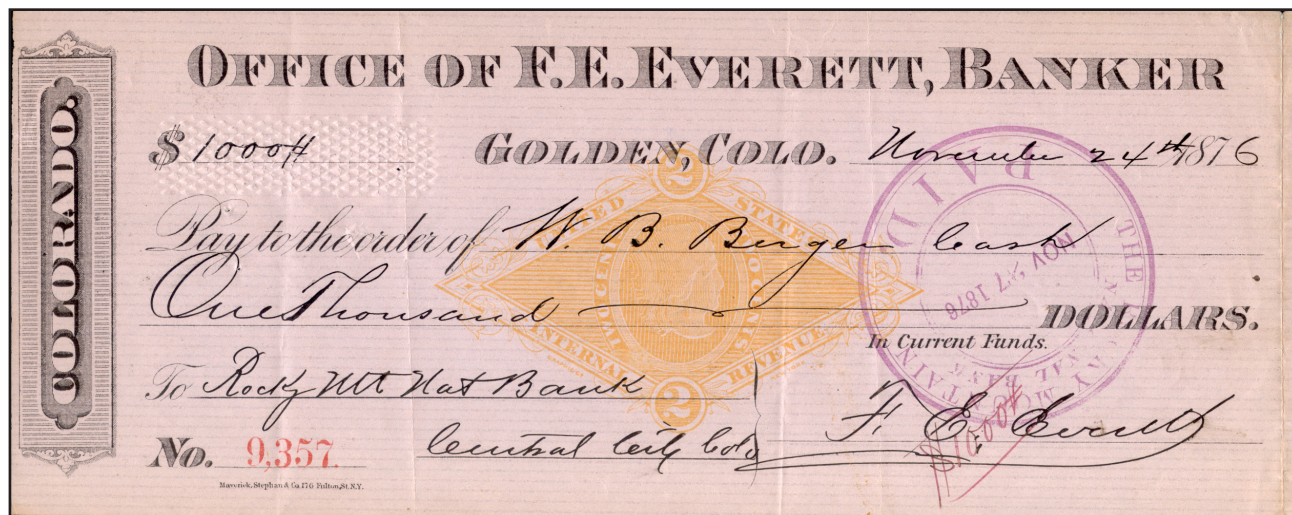 OFFICE OF F.E. EVERETT, BANKER
COLORADO.
$ 1000# GOLDEN, COLO. November 24th 1876
Pay to the order of W. B. Berger Cash
One Thousand DOLLARS.
In Current Funds.
To Rocky Mt Nat Bank
Central City Colo
F. E. Everett
No. 9,357
Maverick, Stephan & Co. 176 Fulton, St. N.Y.
2
UNITED STATES
INTERNAL REVENUE
2
THE ROCKY MOUNTAIN
NATIONAL BANK
PAID
NOV 27 1876
$1000#